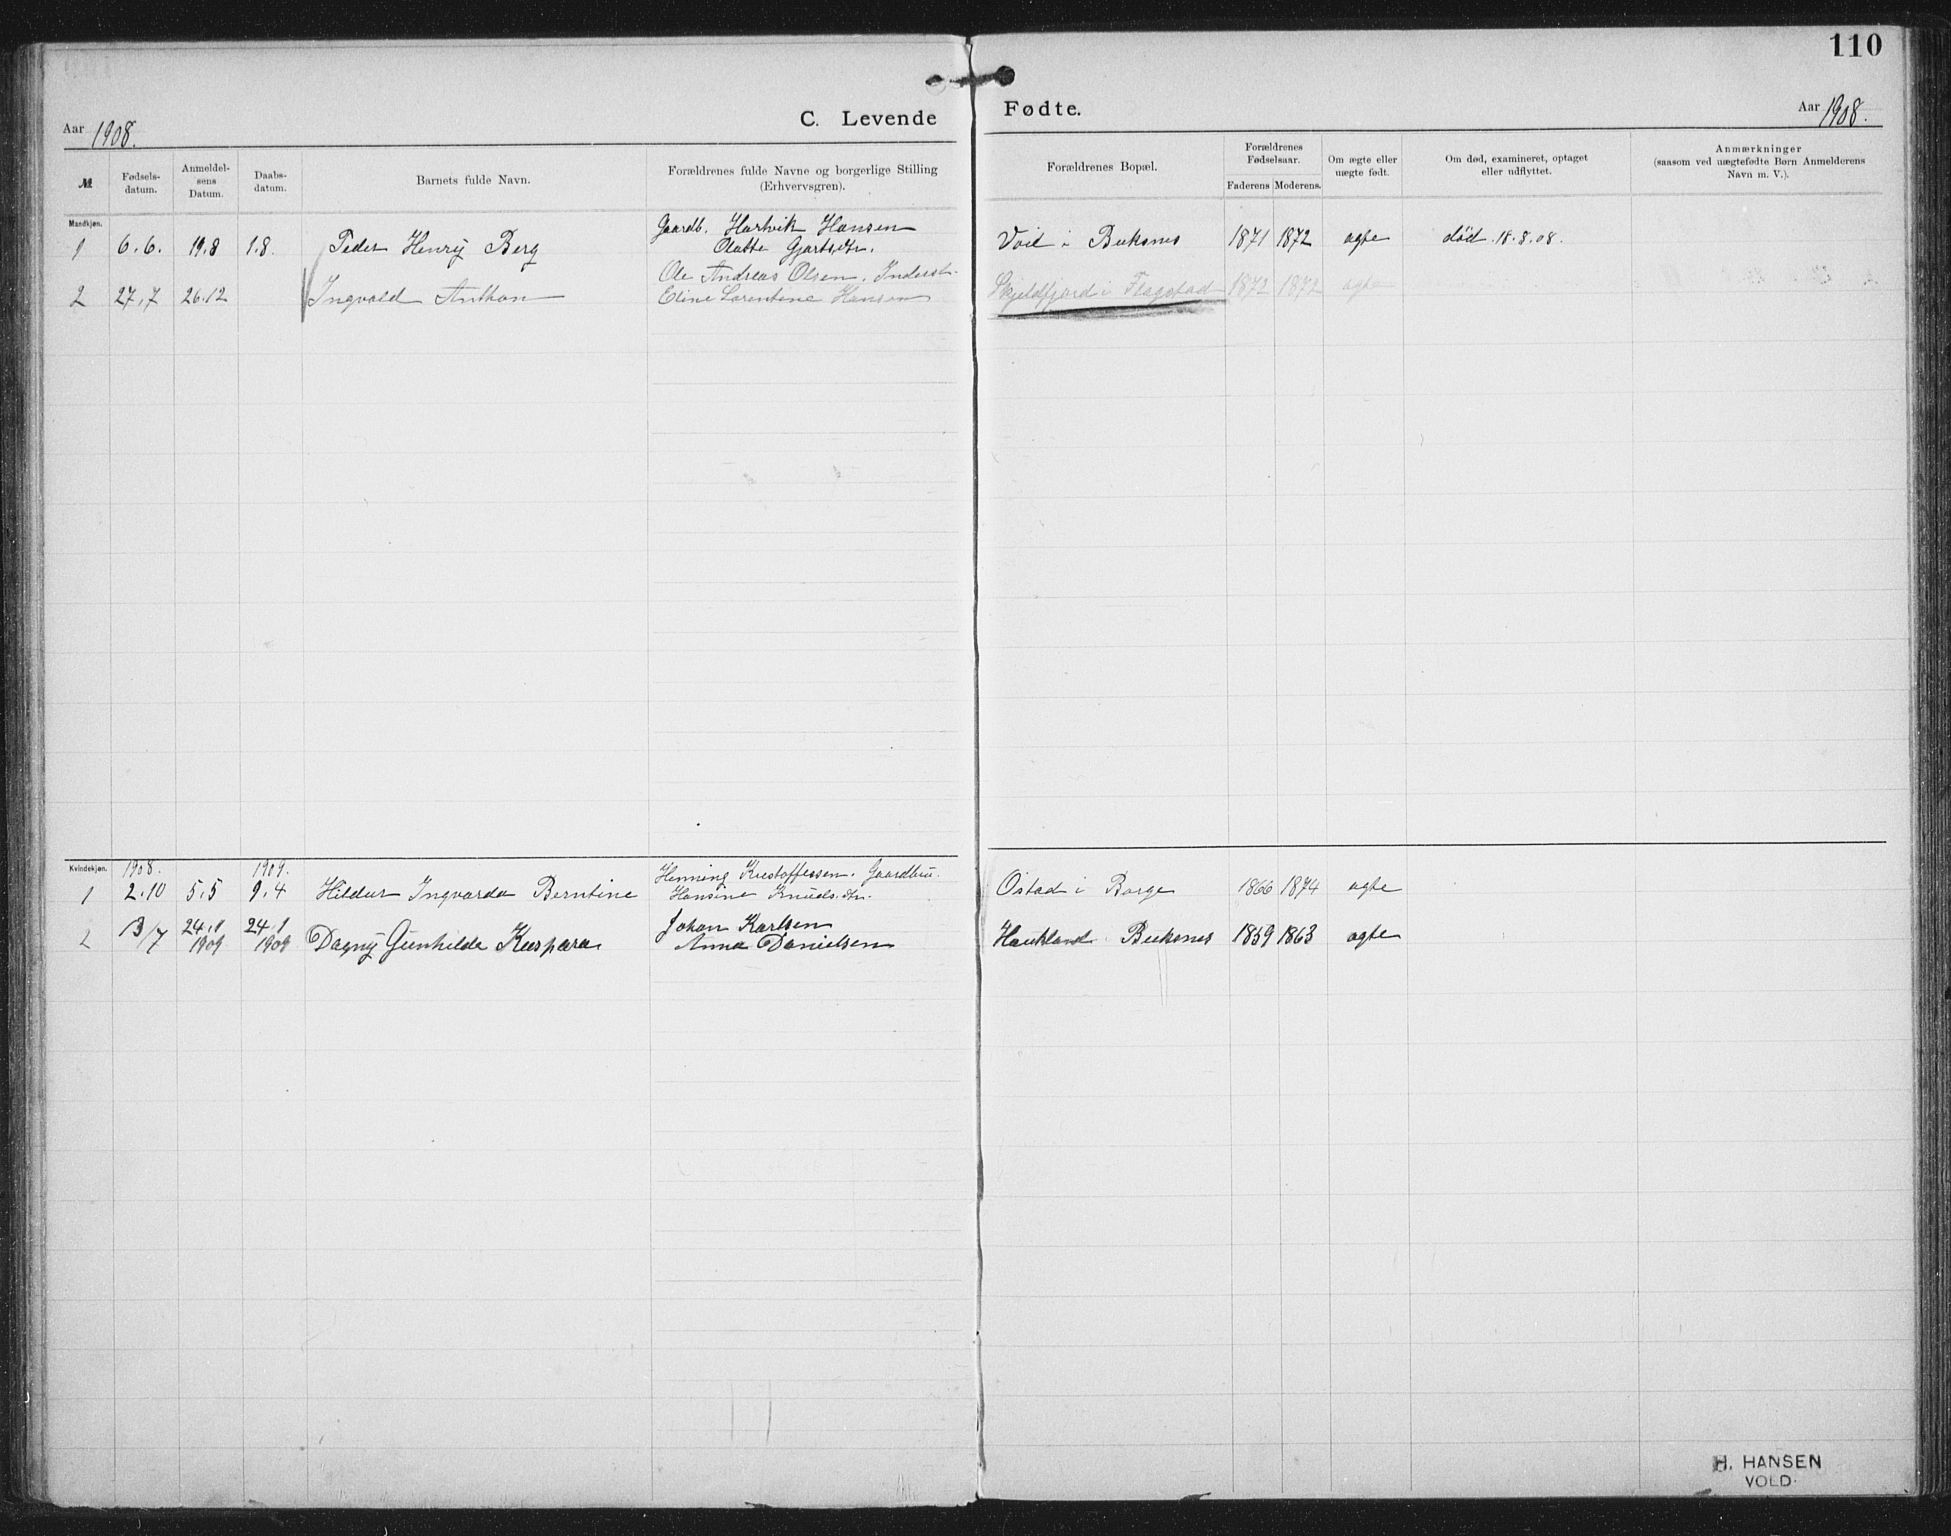 110
Aar 1908.
C. Levende
Fødte.
Aar 1908.
№
Fødsels-datum.
Anmeldel-sens Datum.
Daabs-datum.
Barnets fulde Navn.
Forældrenes fulde Navne og borgerlige Stilling (Erhvervsgren).
Forældrenes Bopæl.
Forældrenes Fødselsaar.
Faderens
Moderens.
Om ægte eller uægte født.
Om død, examineret, optaget eller udflyttet.
Anmærkninger (saasom ved uægtefødte Børn Anmelderens Navn m. V.).
Mandkjøn.
Gaardb. Hartvik Hansen
1 6.6. 19.8 1.8. Peder Henry Berg
Olatte Gjærtsdtr.
i Buksnes 1871 1872 ægte død. 18.8.08.
Ole Andreas Olsen. Inderst.
2 27.7 26.12 Ingvald Anthon
Eline Larentine Hansen
Skjeldfjord i Flagstad 1872 1872 ægte
Kvindekjøn.
1908.
1909.
Henning Kristoffessen. Gaardbru.
1 2.10 5.5 9.4 Hildur Ingvarda Berntine
Hansine Knudsdtr.
Ostad i Borge 1866 1874 ægte
Johan Karlsen
2 13/7 24.1 1909 24.1 1909 Dagny Gunhilda Kaspara
Anna Danielsen
Haukland Buksnes 1859 1863 ægte
H. HANSEN
VOLD.